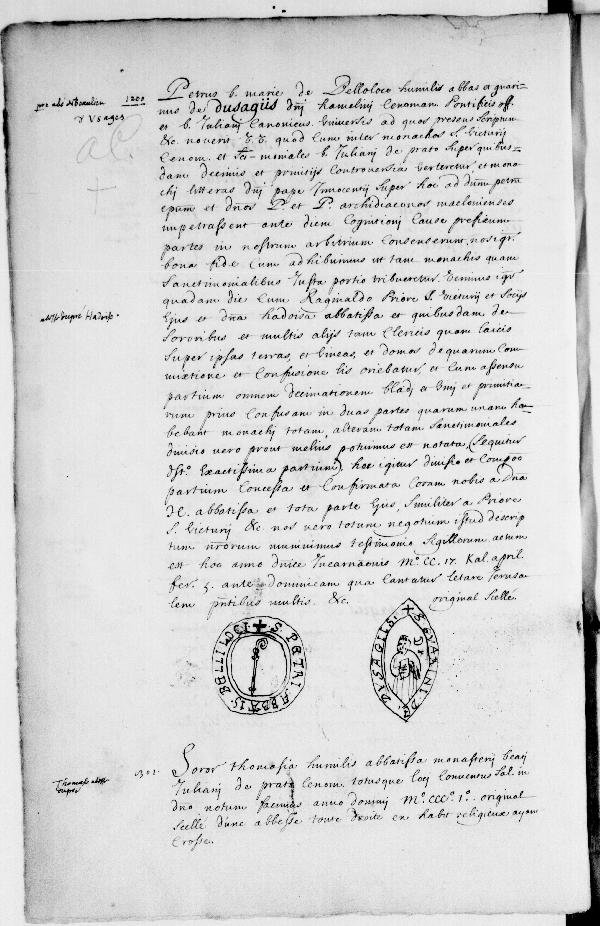 pro abb de Beaulieu 1200
& Usages
Petrus b. marie de Belloloco humilis abbas et guari-
nus de Dusagiis dnj hamelinj Cenoman. Pontificis off.
et b. Julianj Canonicus. Universis ad quos presens scriptum
&c. noverit quod cum inter monachos S. Victurij
Cenom. et sti-moniales b. Julianj de prato super quibus-
dam decimis et primitijs controversia verteretur, et mona-
chj litteras dnj pape Innocentij super hoc ad dnum petrum
epum et dnos P. et P. archidiaconos
impetrassent ante diem Cognitionj Cause prefixum
partes in nostrum arbitrium Consenserunt, nos igr.
bona fide Cum adhibuimus ut tam monachis quam
Sanctimonialibus Justa portio tribueretur. Venimus igr
quadam die Cum Raginaldo Priore S. Victurij et Socijs
abbesse du pre Hadvise
Ejus et dna hadoisa abbatissa et quibusdam de
Sororibus et multis alijs tam Clericis quam laicis
Super ipsas terras, et Vineas, et domos de quarum Com
mixtione et Confusione lis oriebatur, et Cum assensu
partium omnem decimationem bladj et Vinj et primitia-
rum prius Confusam in duas partes quarum unam ha-
bebant monachj totam, alteram totam Sanctimoniales
divisio vero prout melius potuimus est notata, (Sequitur
dsto. Exactissima partium). hec igitur divisio et Compoo
partium Concessa et Confirmata Coram nobis a dna
de. abbatissa et tota parte Ejus, Similiter a Priore
S. Victurij &c nos vero totum negotium istud descrip
tum nrorum munivimus testimonio Sigillorum. actum
est hoc anno dnice Incarnaonis Mo. CC. 17. Kal. april.
fer. 5. ante dominicam qua Cantatur letare Jerusa
lem pntibus multis. &c. original scellé.
+ S. PETRI ABBATIS BELLILOCI
+ S. GVARINI DE DVSAGIIS.
Thomasse abbesse
du pre
1301.
Soror thomasia humilis abbatissa monasterij beatj
Julianj de prato Cenom. totusque locj Conventus Sal. in
dno notum facimus anno dominj Mo. CCCo. 1o. original
scellé d'une abbesse toute droite en habit religieux ayant
Crosse.